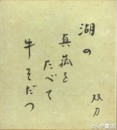 湖の
真菰を
たべて
牛そだつ
双刀